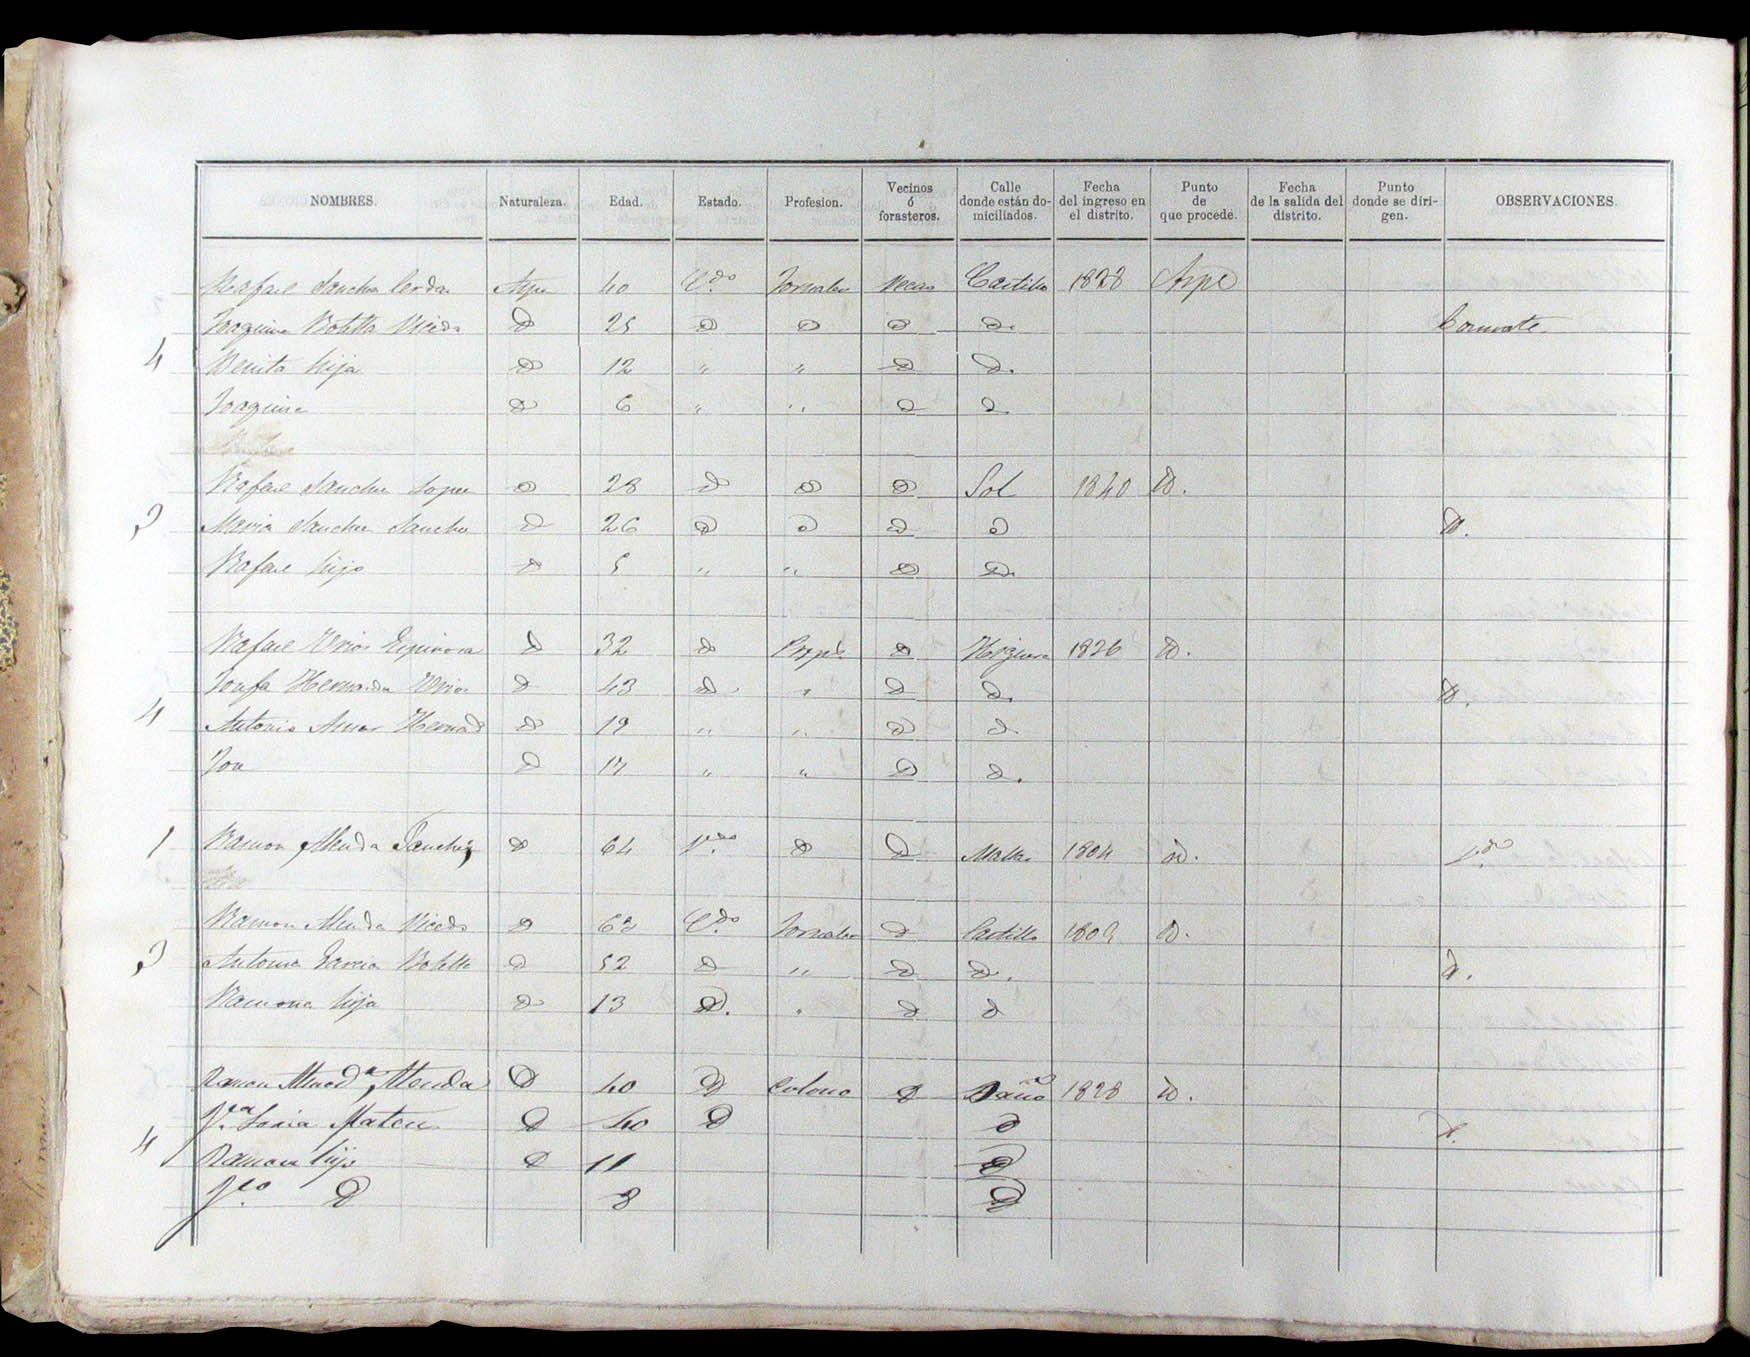 NOMBRES. Naturaleza. Edad. Estado. Profesion. Vecinos ó forasteros. Calle donde están domiciliados. Fecha del ingreso en el distrito. Punto de que procede. Fecha de la salida del distrito. Punto donde se dirigen. OBSERVACIONES.
Rafael Sanchez Cerdan Aspe 40 C.do Jornalero Vecino Castillo 1828 Aspe
Joaquina Botella Vicedo D 25 D D D D.
4 Benita hija D 12 " " D D.
Joaquina D 6 " " D D.
Rafael Sanchez Lopez D 28 D D D Sol 1840 D.
3 Maria Sanchez Sanchez D 26 D D D D D.
Rafael hijo D 5 " " D D.
Rafael Urios Espinosa D 32 D D 1826 D.
Josefa Hernandez Urios D 43 D. " D D. D.
4 Antonio Hernad D 19 " " D D.
Jose D " " D D.
1 Ramon Almoda Sanchiz D 64 V.do D D 1804 D. V.do
Ramon Vicedo D C.do Jornalero D Castillo 1809 D.
3 Antonia Garcia Botella D 52 D " D D. D.
Ramona hija D 13 D. " D D
Ramon D 40 D Colono D 1828 D.
Mateu D 40 D D D.
4 Ramon hijo D 11 D
D 8 D